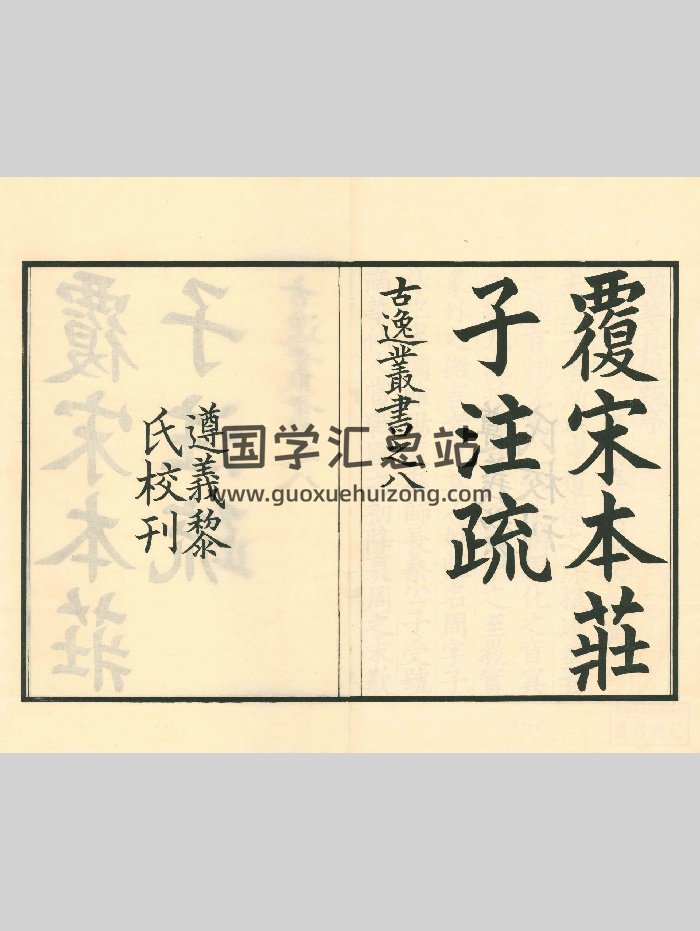 覆宋本莊
子注疏
古逸叢書之八
遵義黎
氏校刊
国学汇总站
www.guoxuehuizong.com